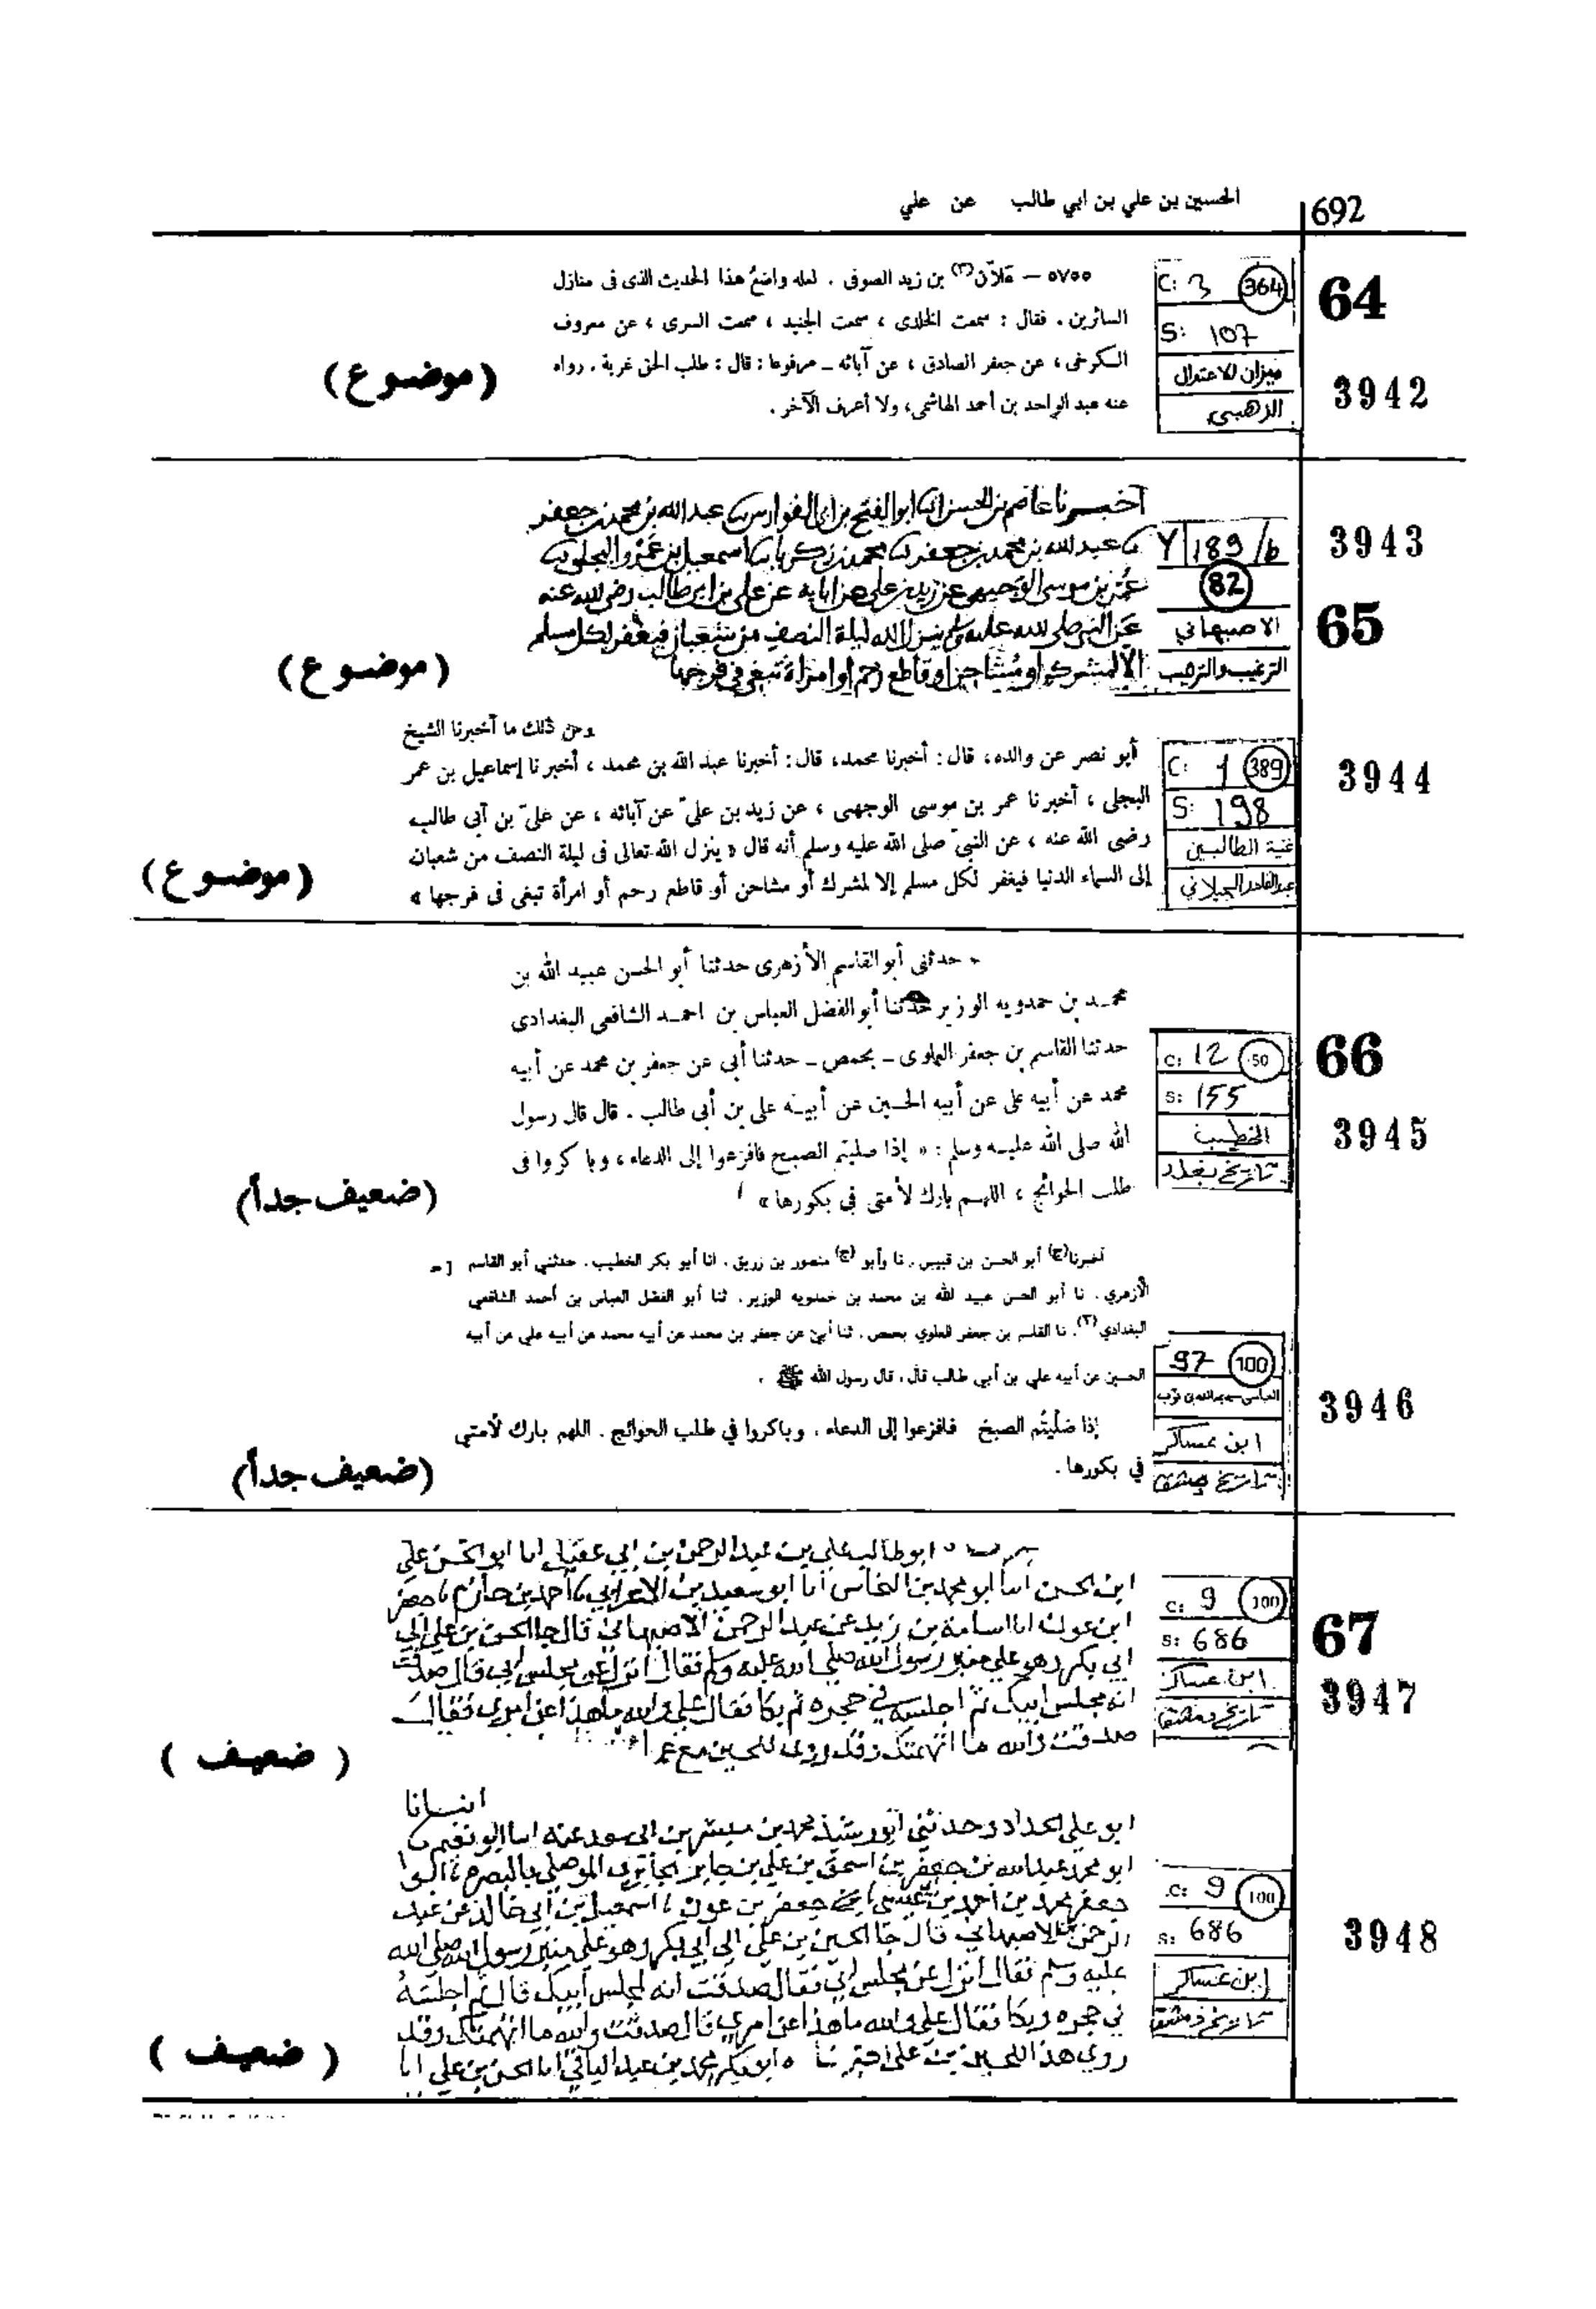 692
الحسين بن علي بن ابي طالب عن علي
64
3942
C: 3 364
S: 107
ميزان الاعتدال
الذهبي
٥٧٥٥ — علّان(٣) بن زيد الصوفى . لعله واضعُ هذا الحديث الذى فى منازل
السائرين . فقال : سمعت الخلدى ، سمعت الجنيد ، سمعت السرى ، عن معروف
الكرخى ، عن جعفر الصادق ، عن آبائه ــ مرفوعا : قال : طلب الحق غربة . رواه
عنه عبد الواحد بن أحمد الهاشمى، ولا أعرف الآخر .
(موضوع)
3943
65
Y 189/b
82
الاصبهاني
الترغيب والترهيب
اخبرنا عاصم بن الحسن ابو الفتح بن ابي الفوارس عبد الله بن محمد بن جعفر
عبد الله بن محمد بن جعفر محمد بن زكريا اسمعيل بن عمرو البجلي
عمر بن موسى الوجيهي عن زيد بن علي عن ابايه عن علي بن ابي طالب رضي الله عنه
عن النبي صلى الله عليه وسلم ينزل الله ليلة النصف من شعبان فيغفر لكل مسلم
الا لمشرك او مشاحن او قاطع رحم او امراة تبغي في فرجها
(موضوع)
3944
C: 1 389
S: 198
غنية الطالبين
عبد القادر الجيلاني
ومن ذلك ما أخبرنا الشيخ
أبو نصر عن والده، قال: أخبرنا محمد، قال: أخبرنا عبد الله بن محمد ، أخبرنا إسماعيل بن عمر
البجلى ، أخبرنا عمر بن موسى الوجهى ، عن زيد بن علىّ عن آبائه ، عن علىّ بن أبى طالب
رضى الله عنه ، عن النبىّ صلى الله عليه وسلم أنه قال « ينزل الله تعالى فى ليلة النصف من شعبان
إلى السماء الدنيا فيغفر لكل مسلم إلا لمشرك أو مشاحن أو قاطع رحم أو امرأة تبغى فى فرجها »
(موضوع)
66
3945
c: 12 50
s: 155
الخطيب
تاريخ بغداد
• حدثنى أبو القاسم الأزهرى حدثنا أبو الحسن عبيد الله بن
محمـد بن حمدويه الوزير حدثنا أبو الفضل العباس بن احمـد الشافعى البغدادى
حدثنا القاسم بن جعفر العلوى ــ بحمص ــ حدثنا أبى عن جعفر بن محمد عن أبيه
محمد عن أبيه على عن أبيه الحسين عن أبيـه على بن أبى طالب . قال قال رسول
الله صلى الله عليـه وسلم : « إذا صليتم الصبح فافزعوا إلى الدعاء ، وباكروا فى
طلب الحوائج ، اللهم بارك لأمتى فى بكورها »
(ضعيف جداً)
3946
97 100
ابن عساكر
تاريخ دمشق
أخبرنا(ج) أبو الحسن بن قبيس، نا وأبو (ج) منصور بن زريق، انا أبو بكر الخطيب، حدثني أبو القاسم
الأزهري، نا أبو الحسن عبيد الله بن محمد بن حمدويه الوزير، ثنا أبو الفضل العباس بن أحمد الشافعي
البغدادي(٣)، نا القاسم بن جعفر العلوي بحمص، ثنا أبي عن جعفر بن محمد عن أبيه محمد عن أبيه علي عن أبيه
الحسين عن أبيه علي بن أبي طالب قال، قال رسول الله ﷺ .
إذا صَلَّيتُم الصبح فافزعوا إلى الدعاء، وباكروا في طلب الحوائج. اللهم بارك لأمتي
في بكورها.
(ضعيف جداً)
67
3947
c: 9 100
s: 686
ابن عساكر
تاريخ دمشق
ابو طالب علي بن عبد الرحمن بن ابي عقيل انا ابو الحسن علي
ابن الحسن انا ابو محمد بن النحاس انا ابو سعيد بن الاعرابي احمد بن حازم جعفر
ابن عون انا اسامة بن زيد عن عبد الرحمن الاصبهاني قال جا الحسن بن علي الى
ابي بكر وهو على منبر رسول الله صلى الله عليه وسلم فقال انزل عن مجلس ابي قال صدقت
انه مجلس ابيك ثم اجلسه في حجره ثم بكا فقال علي والله ما هذا عن امري فقال
صدقت والله ما اتهمتك وقد روى للحسين مع عمر
( ضعيف )
3948
c: 9 100
s: 686
ابن عساكر
تاريخ دمشق
انبانا
ابو علي الحداد وحدثني ابو رشيد محمد بن مبشر بن ابي سعد عنه انا ابو نعيم
ابو محمد عبد الله بن جعفر بن اسحق بن علي بن جابر الجابري الموصلي بالبصرة
جعفر محمد بن احمد بن جعفر بن عون اسمعيل بن أبي خالد عن عبد
الرحمن الاصبهاني قال جا الحسين بن علي الى أبي بكر وهو على منبر رسول الله صلى الله
عليه وسلم فقال انزل عن مجلس ابي فقال صدقت انه لمجلس ابيك قال ثم اجلسه
في حجره وبكا فقال علي والله ما هذا عن امري قال صدقت والله ما اتهمتك وقد
روى هذا للحسين بن علي اخبرنا ابو بكر محمد بن عبد الباقي انا الحسن بن علي انا
( ضعيف )